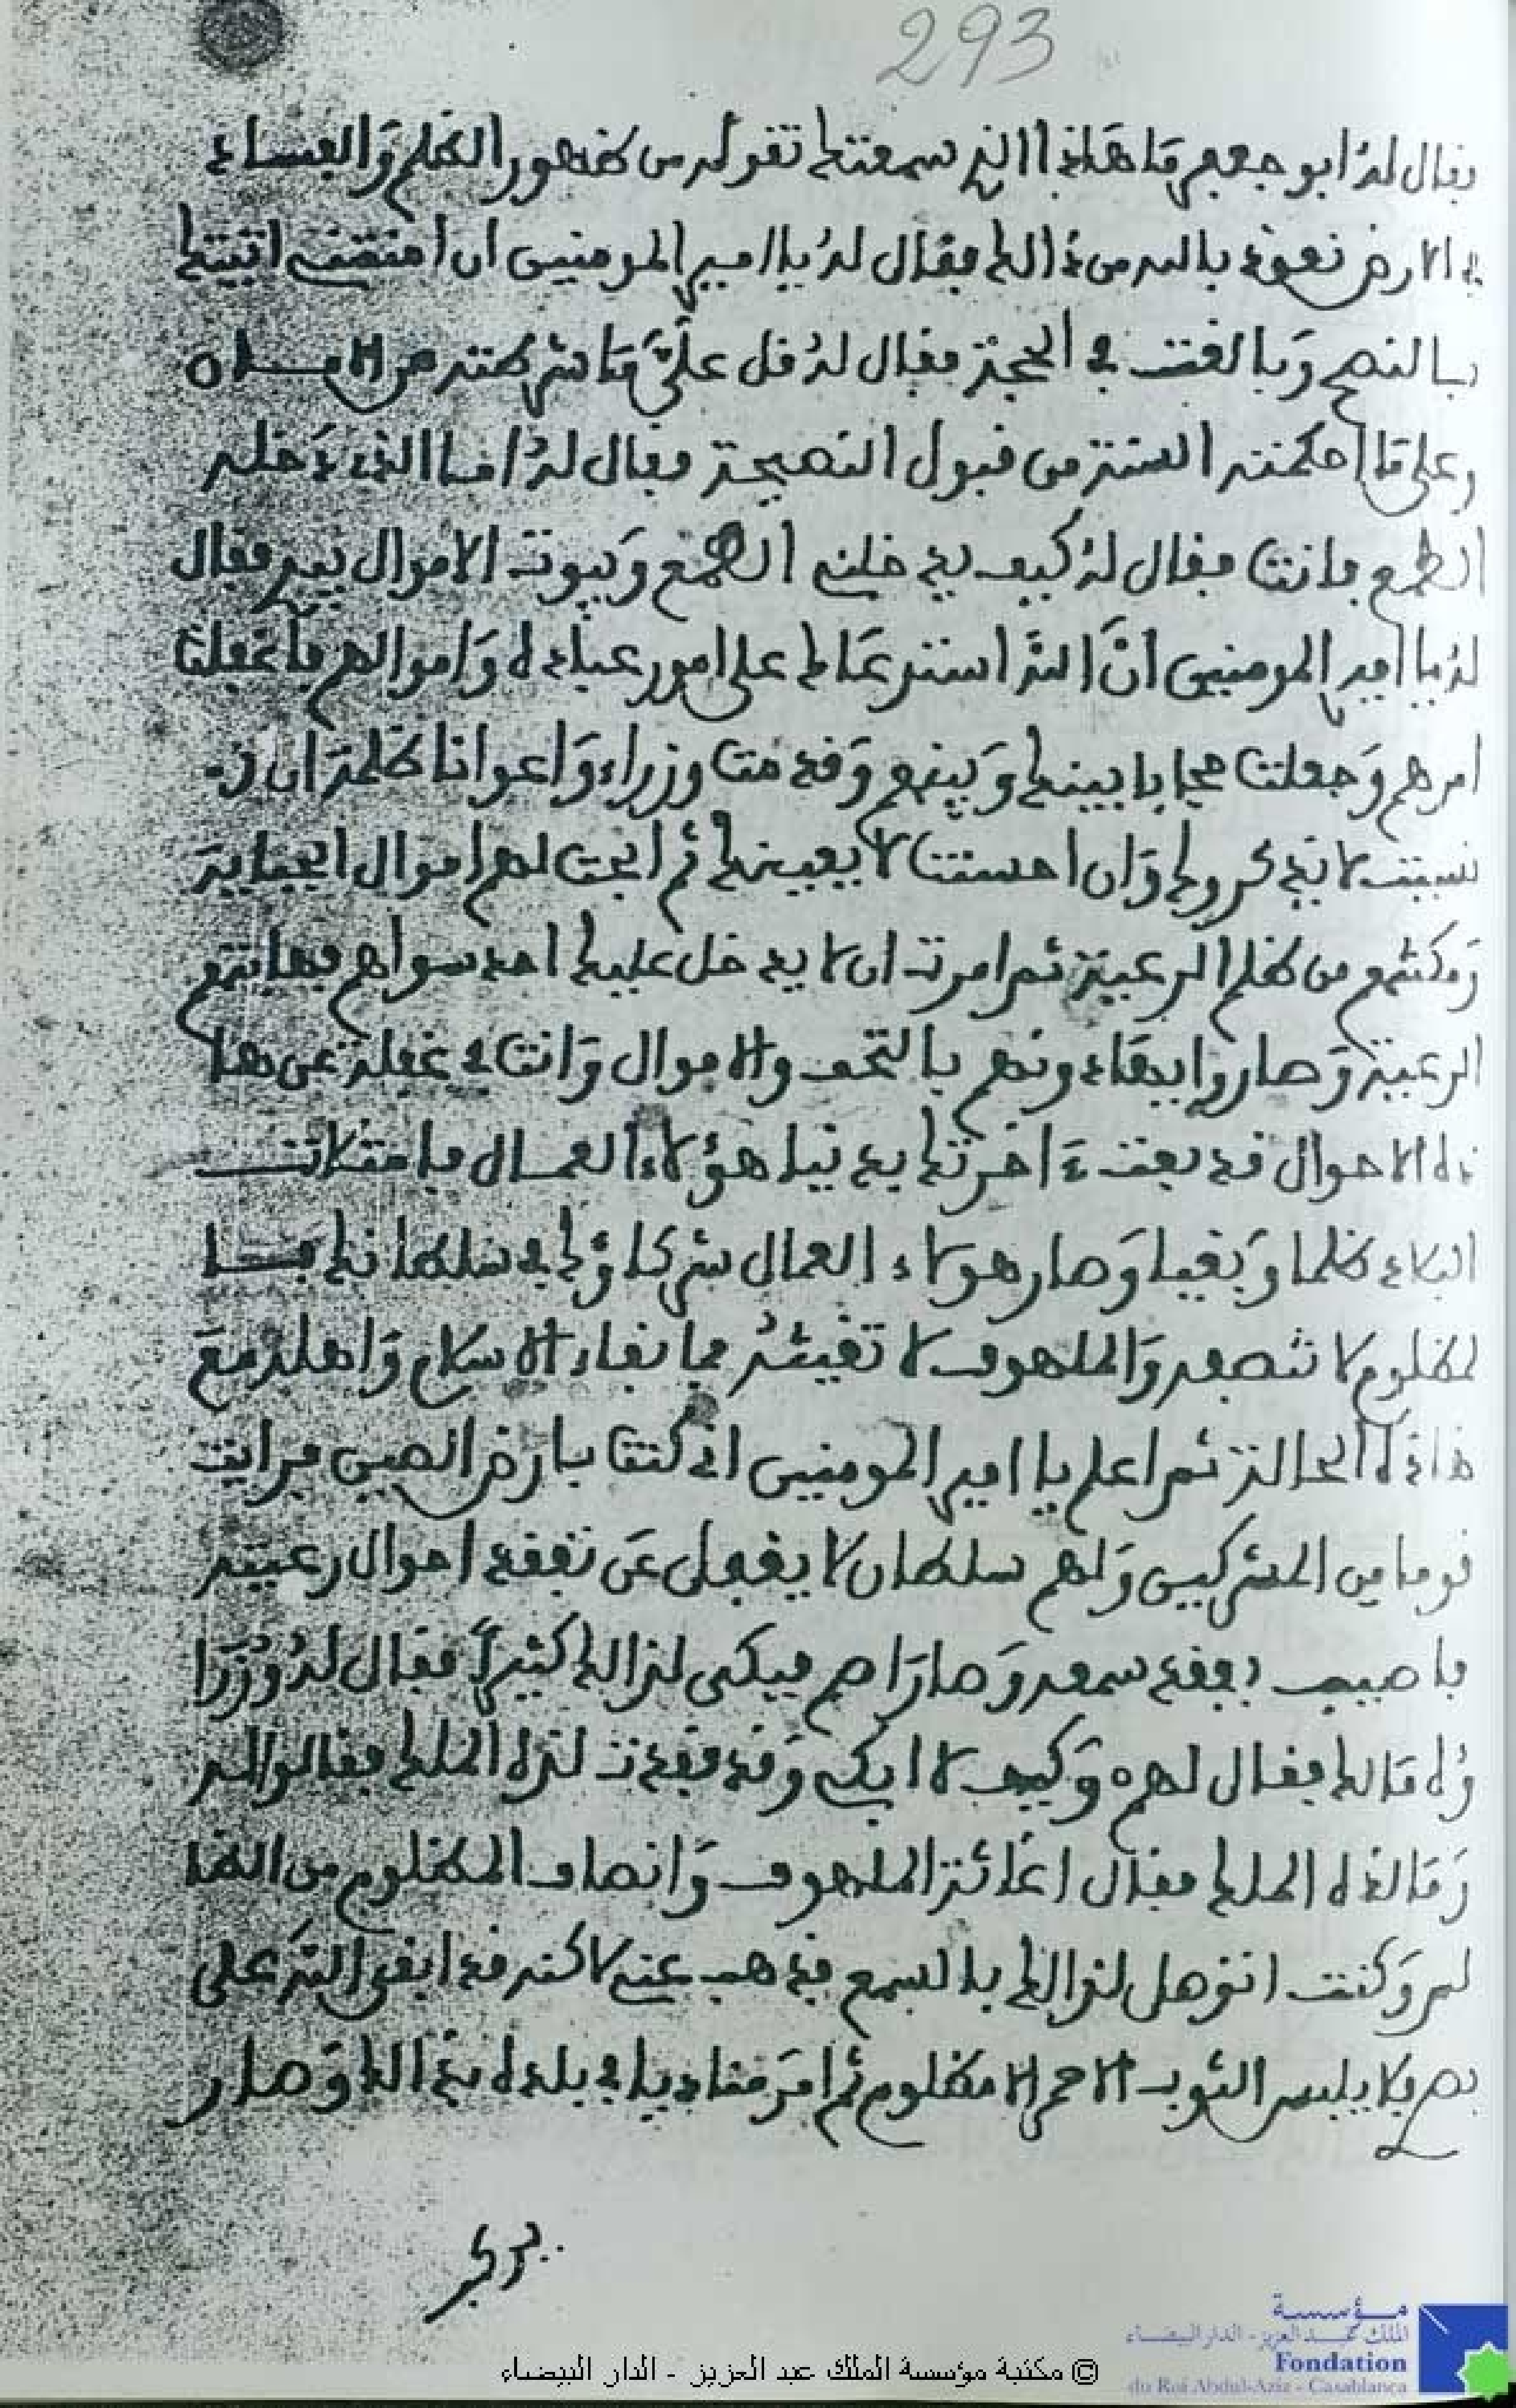 293
فقال له ابو جعفر ما هاذا الذي سمعتك تقوله من ظهور الظلم والفساد
في الارض نعوذ بالله من ذالك فقال له يا امير المومنين ان امنتني اتيتك
بالنصح وبالغت في الحجة فقال له قل علي ما شرطته من الامان
وعلى ما احكمته السنة من قبول النصيحة فقال له اما الذي دخله
الطمع فانت فقال له كيف يدخلني الطمع وبيوت الاموال بيدي فقال
له يا امير المومنين ان الله استرعاك على امور عباده واموالهم فاغفلت
امرهم وجعلت حجابا بينك وبينهم وقدمت وزراء واعوانا ظلمة ان
نسيت لا يذكروك وان احسنت لا يعينك ثم ابحت لهم اموال الجباية
ومكنتهم من ظلم الرعية ثم امرت ان لا يدخل عليك احد سواهم فهابتهم
الرعية وصاروا يهادونهم بالتحف والاموال وانت في غفلة عن ها
ذه الاحوال قد بعت ءاخرتك بدنيا هؤلاء العمال فامتلات
البلاد ظلما وبغيا وصار هولاء العمال شركاؤك في سلطانك فا
لمظلوم لا تنصفه والملهوف لا تغيثه فما بقاء الاسلام واهله مع
هاذه الحالة ثم اعلم يا امير المومنين اني كنت بارض الصين فرايت
قوما من المشركين ولهم سلطان لا يغفل عن تفقد احوال رعيته
فاصيب بفقد سمعه وصار اصم فبكى لذالك كثيرا فقال له وزرا
ؤه مالك فقال لهم وكيف لا ابكي وقد فقدت لذة الملك فقالوا له
وما لذة الملك فقال اغاثة الملهوف وانصاف المظلوم من الظا
لم وكنت اتوصل لذالك بالسمع فذهب عني لاكنه قد ابقى الله علي
بصري لا يلبس الثوب الاحمر الا مظلوم ثم امر مناديا في بلده بذالك وصار
يركب
مؤسسة
الملك عبد العزيز - الدار البيضاء
Fondation
du Roi Abdul-Aziz - Casablanca
© مكتبة مؤسسة الملك عبد العزيز - الدار البيضاء